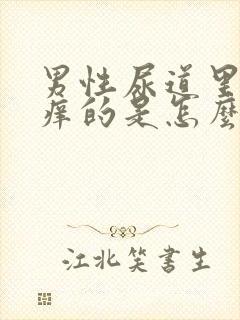 男性尿道里
痒的是怎麼
江北笑書生